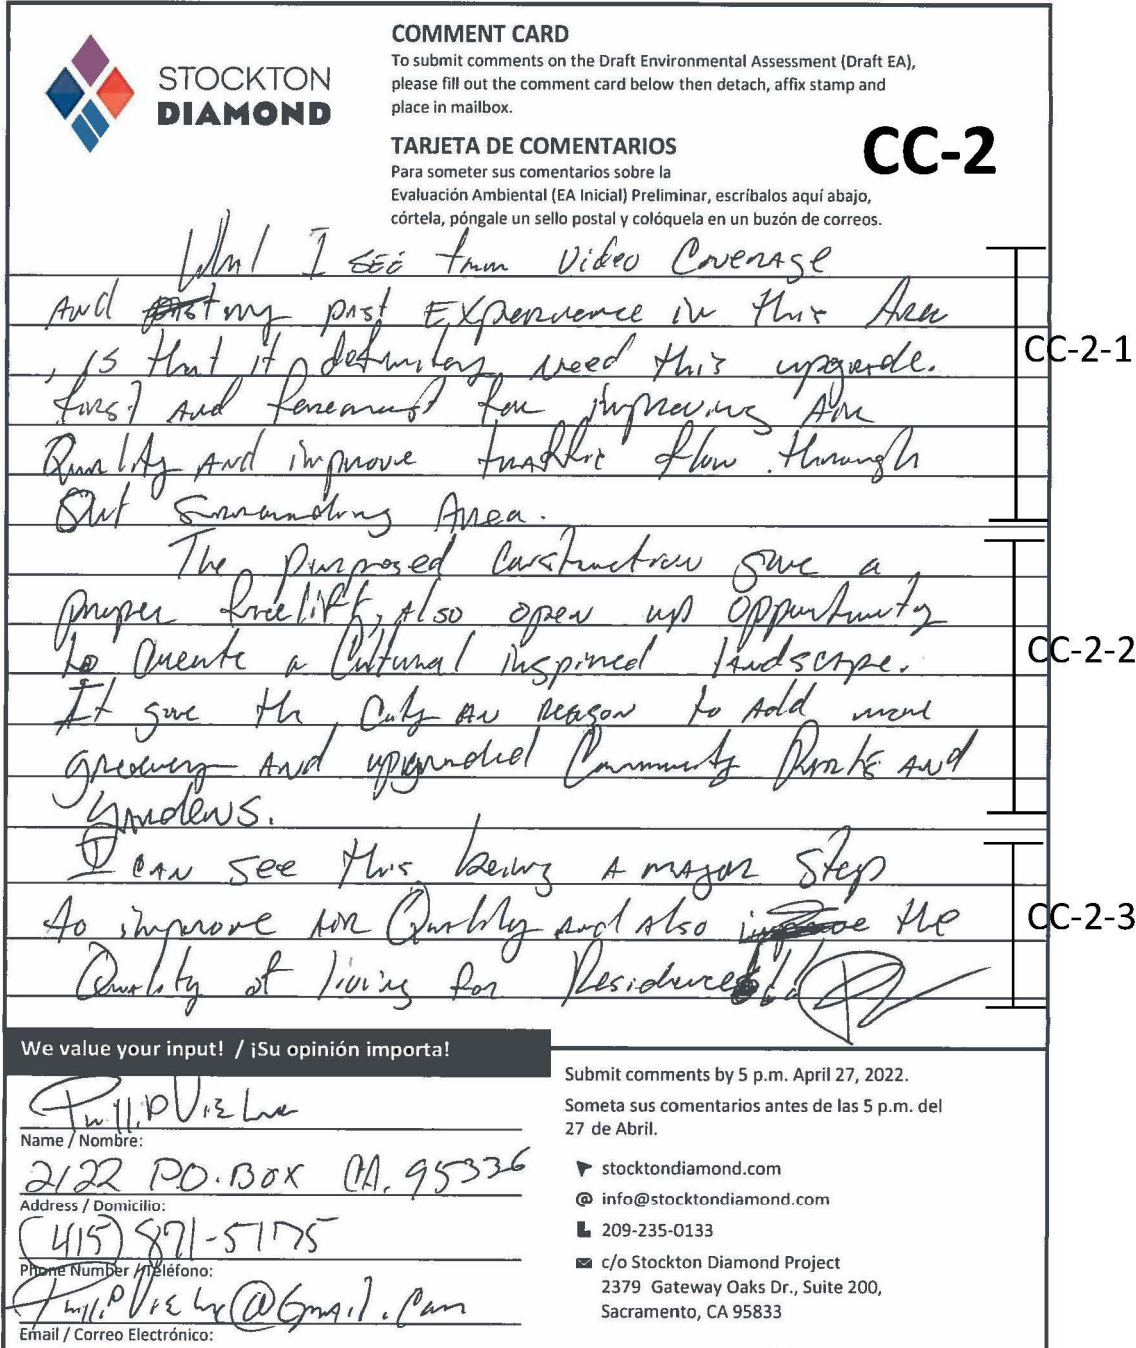 STOCKTON
DIAMOND
COMMENT CARD
To submit comments on the Draft Environmental Assessment (Draft EA),
please fill out the comment card below then detach, affix stamp and
place in mailbox.
TARJETA DE COMENTARIOS
CC-2
Para someter sus comentarios sobre la
Evaluación Ambiental (EA Inicial) Preliminar, escríbalos aquí abajo,
córtela, póngale un sello postal y colóquela en un buzón de correos.
What I SEE from Video Coverage
And my past Experience in this Area
, is that it definitely need this upgrade.
CC-2-1
first and foremost for improving Air
Quality and improve traffic flow through
Out Surrounding Area.
The purposed Construction gave a
proper facelift, also open up opportunity
to Create a Cultural inspired landscape.
CC-2-2
It gave the City an reason to Add more
greenery And upgraded Community Parks and
Gardens.
I CAN see this being A major Step
to improve Air Quality and also improve the
CC-2-3
Quality of living for
We value your input! / ¡Su opinión importa!
Name / Nombre:
2122 PO. BOX CA. 95336
Address / Domicilio:
(415) 871-5175
Phone Number / Teléfono:
@Gmail.com
Email / Correo Electrónico:
Submit comments by 5 p.m. April 27, 2022.
Someta sus comentarios antes de las 5 p.m. del
27 de Abril.
stocktondiamond.com
@ info@stocktondiamond.com
209-235-0133
c/o Stockton Diamond Project
2379 Gateway Oaks Dr., Suite 200,
Sacramento, CA 95833